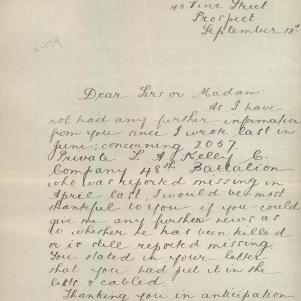 43 Vine Street
Prospect
September 12th
Dear Sirs or Madam.
As I have
not had any further information
from you since I wrote last in
June; concerning 2057.
Private L. A. Kelly C.
Company 48th Battalion
who was reported missing in
April last. I would be most
thankful to you if you could
give me any further news as
to whether he has been killed
or is still reported missing
You stated in your letter
that you had put it in the
lists & cabled.
Thanking you in anticipation